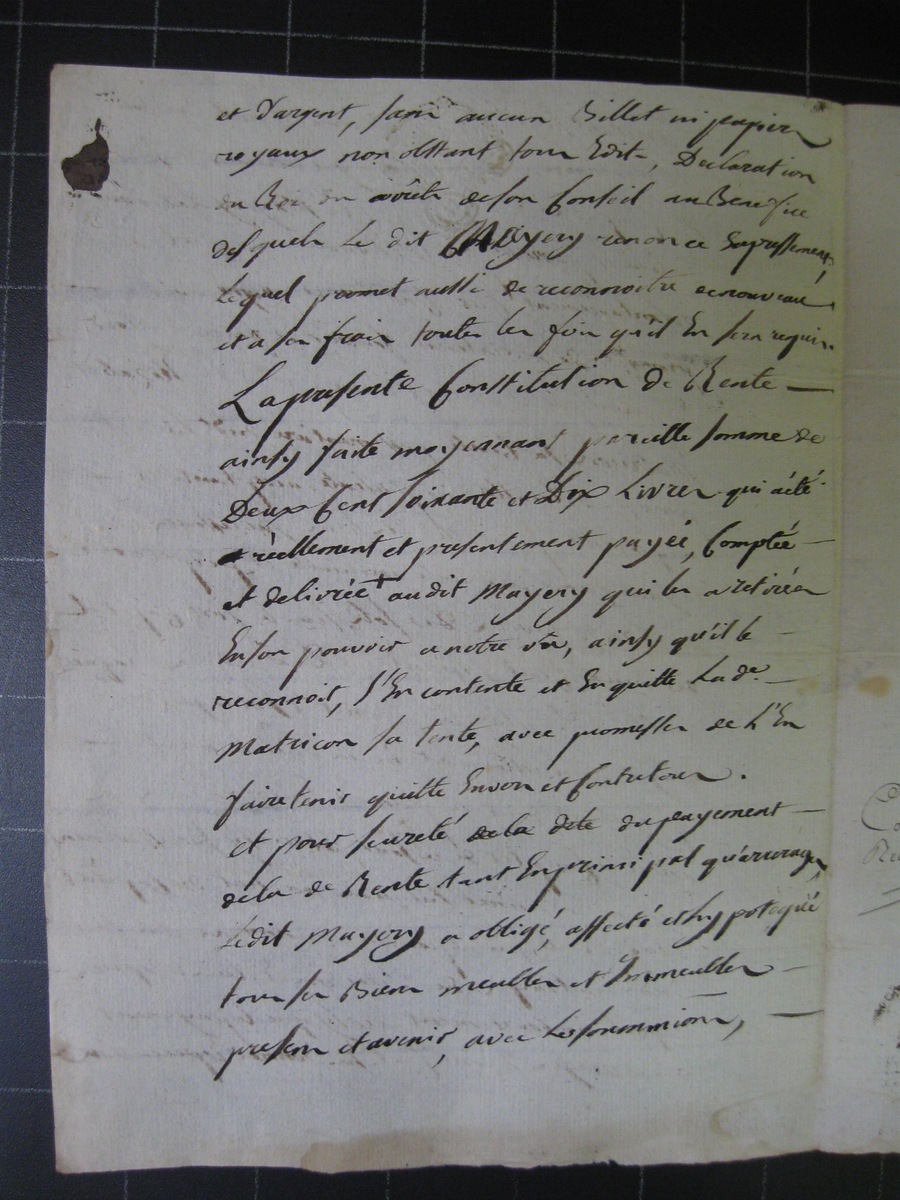 et d'argent, sans aucun Billet ni papiers
royaux non obstant tous Edits, Declaration
du Roi ou arrêts de son Conseil au Benefice
desquels Le dit Mayery renonce Expressement,
Lequel promet aussi de reconnoitre de nouveau
et a ses frais toutes les fois qu'il En sera requis.
La presente Constitution de Rente
ainsy faite moyennant pareille somme de
Deux Cent soixante et Dix Livres qui a été
réellement et presentement payée, Comptée
et delivrée + audit Mayery qui les a retirées
En son pouvoir a notre vüe, ainsy qu'il le
reconnoit, s'En contente et En quitte La de.
Matricon sa tente, avec promesses de L'En
faire tenir quitte Envers et Contre tous.
et pour sureté de la dite du payement
de la de Rente tant En principal qu'arrerages,
Ledit Mayery a obligé, affecté et hypotequé
tous ses Biens meubles et Immeubles
presens et avenir, avec Les soumissions,